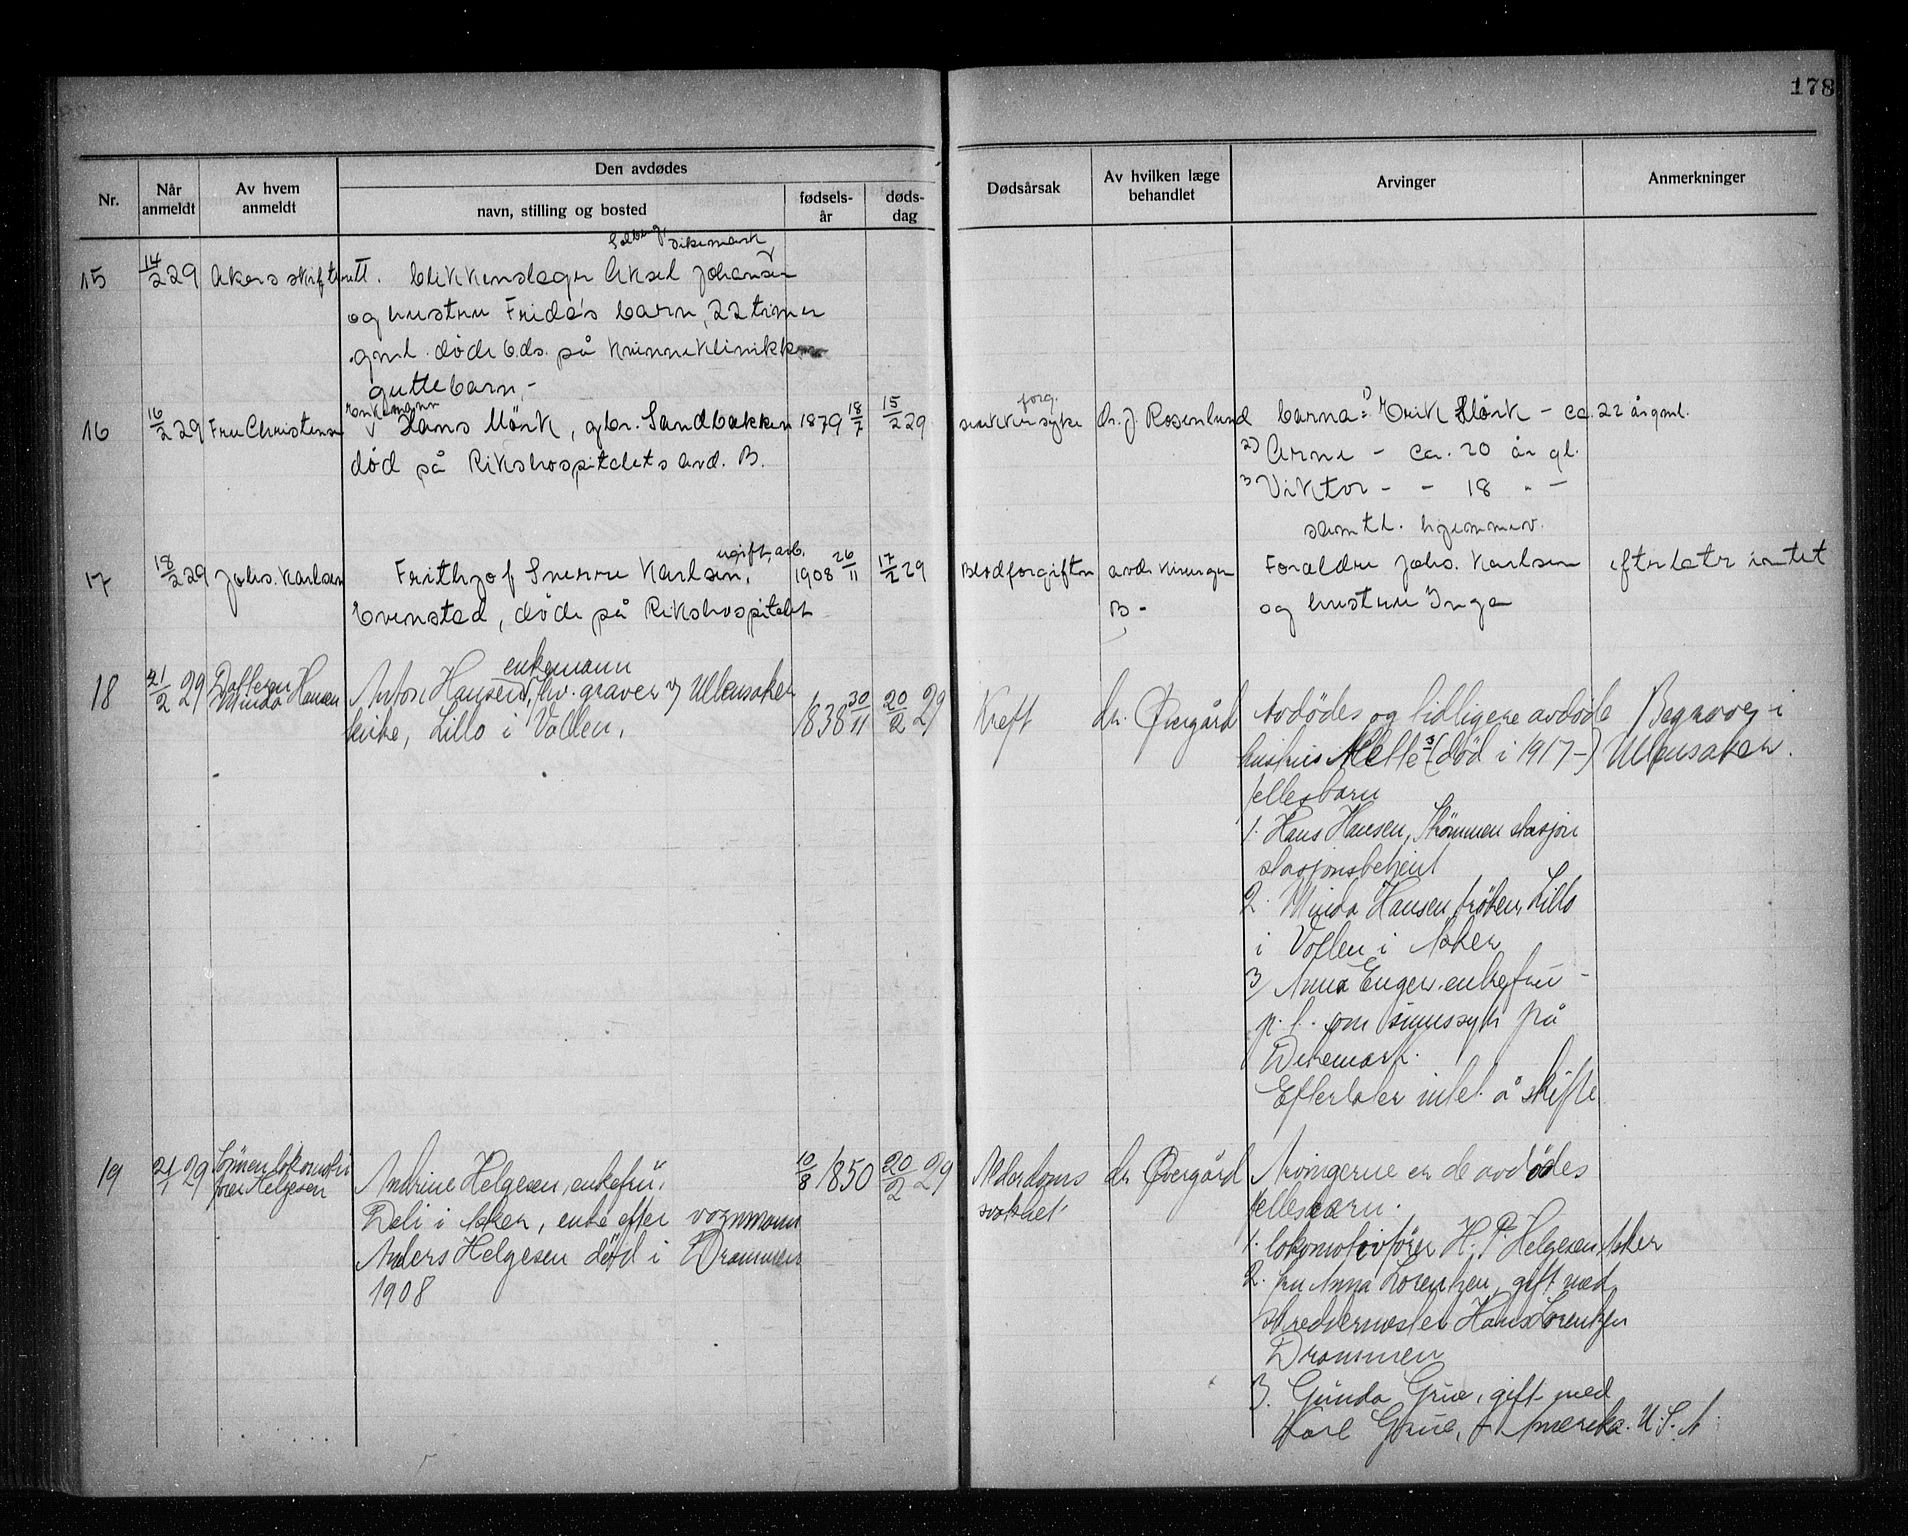 178
Den avdødes
Nr.
Når anmeldt
Av hvem anmeldt
navn, stilling og bosted
fødsels-år
døds-dag
Dødsårsak
Av hvilken læge behandlet
Arvinger
Anmerkninger
Dikemark
15 14/2 29 Akers skifterett. blikkenslager Aksel Johansen
og hustru Frida's barn, 22 timer
gml. døde 6 ds. på Kvinneklinikken
guttebarn,-
Enkemann
forg.
16 16/2 29 Fru Christensen Hans Mörk, gbr. Sandbakken 1879 18/7 15/2 29 sukkersyke dr. J. Rosenlund barna: 1) Erik Mörk - ca. 22 år gml.
død på Rikshospitalets avd. B. 2) Arne - ca. 20 år gl.
3 Viktor - - 18 " -
samtl. hjemmev.
ugift, arb.
17 18/2 29 Johs. Karlsen Frithjof Sverre Karlsen, 1908 26/11 17/2 29 Blodforgiftn avd. Kirurgen Foreldre Johs. Karlsen efterlater intet
Evensted, døde på Rikshospitalet B - og hustru Inga
enkemann
18 21/2 29 Datteren Minda Hansen Anton Hansen, fhv. graver v/ Ullensaker 1838 30/11 20/2 29 Kreft dr. Øvergård Avdødes og tidligere avdøde Begraves i
kirke, Lillo i Vollen, hustru (død i 1917-) Ullensaker.
fellesbarn
1. Hans Hansen, Strømmen stasjon
stasjonsbetjent
2. Minda Hansen, frøken, Lillo
i Vollen i Asker
3) Anna Enger enkefru -
p. t. som sinnssyk på
Dikemark.
Efterlater intet å skifte
19 21/1 29 Sønnen lokomotivfører Helgesen Andrine Helgesen, enkefru, 10/8 1850 20/2 29 Alderdoms dr. Øvergård Arvingerne er de avdødes
Deli i Asker, enke efter vognmann svakhet fellesbarn.
Anders Helgesen død i Drammen 1. lokomotivfører H. P. Helgesen, Asker
1908 2. fru Anna Lorentzen, gift med
skreddermester Hans Lorentzen
Drammen
3. Gunda Grue, gift med
Karl Grue, i Amerika. U. S. A.